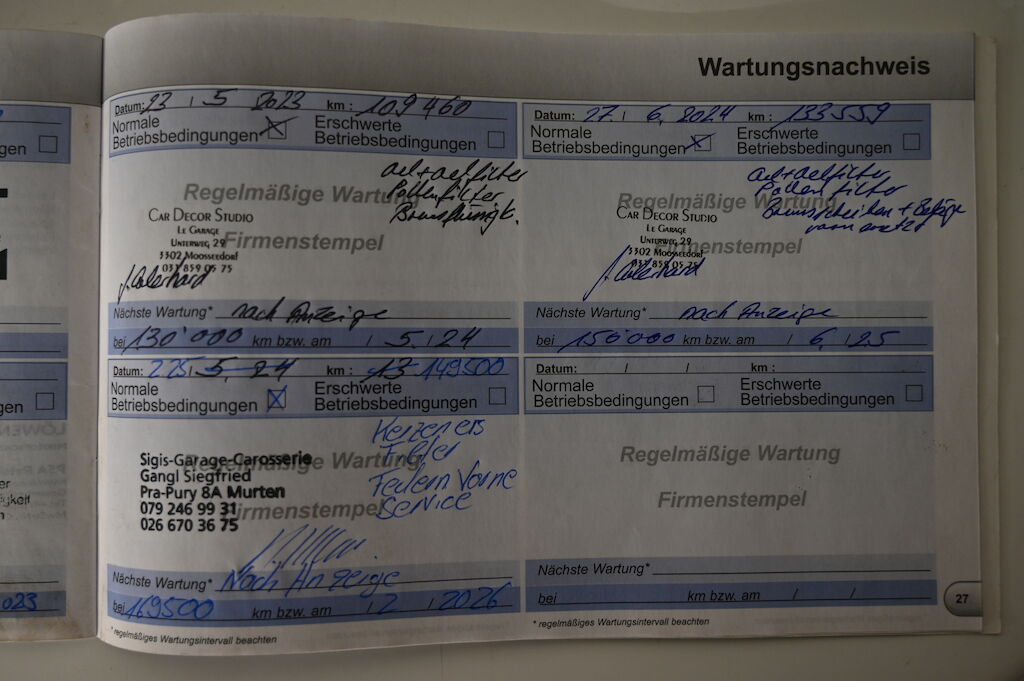 Wartungsnachweis
Datum: 23 / 5 2023 km : 109460
Normale Betriebsbedingungen Erschwerte Betriebsbedingungen
oel + oelfilter
Pollenfilter
Regelmäßige Wartung
CAR DECOR STUDIO
LE GARAGE
UNTERWEG 29
3302 MOOSSEEDORF
031 859 05 75
Firmenstempel
Nächste Wartung* nach Anzeige
bei 130'000 km bzw. am / 5 / 24
Datum: 27 / 6. 2024 km : 133559
Normale Betriebsbedingungen Erschwerte Betriebsbedingungen
oel + oelfilter
Pollenfilter
Bremsscheiben + Beläge
Regelmäßige Wartung
CAR DECOR STUDIO
LE GARAGE
UNTERWEG 29
3302 MOOSSEEDORF
031 859 05 75
Firmenstempel
Nächste Wartung* nach Anzeige
bei 150'000 km bzw. am / 6 / 25
Datum: km : 149500
Normale Betriebsbedingungen Erschwerte Betriebsbedingungen
Filter
Federn Vorne
Service
Regelmäßige Wartung
Sigis-Garage-Carosserie
Gangl Siegfried
Pra-Pury 8A Murten
079 246 99 31
026 670 36 75
Firmenstempel
Nächste Wartung* Nach Anzeige
bei 169500 km bzw. am / 2 / 2026
* regelmäßiges Wartungsintervall beachten
Datum: / / km :
Normale Betriebsbedingungen Erschwerte Betriebsbedingungen
Regelmäßige Wartung
Firmenstempel
Nächste Wartung*
bei km bzw. am / /
* regelmäßiges Wartungsintervall beachten
27